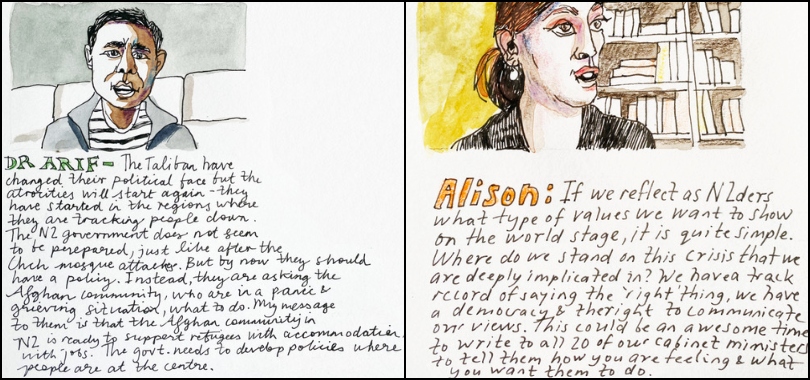 DR ARIF - The Taliban have
changed their political face but the
atrocities will start again - they
have started in the regions where
they are tracking people down.
The NZ government does not seem
to be perepared, just like after the
Chch mosque attacks. But by now they should
have a policy. Instead, they are asking the
Afghan community, who are in a panic &
grieving situation, what to do. My message
to them is that the Afghan community in
NZ is ready to support refugees with accommodation,
with jobs. The govt. needs to develop policies where
people are at the centre.
Alison: If we reflect as NZders
what type of values we want to show
on the world stage, it is quite simple.
Where do we stand on this crisis that we
are deeply implicated in? We have a track
record of saying the 'right' thing, we have
a democracy & the right to communicate
our views. This could be an awesome time
to write to all 20 of our cabinet ministers
to tell them how you are feeling & what
you want them to do.